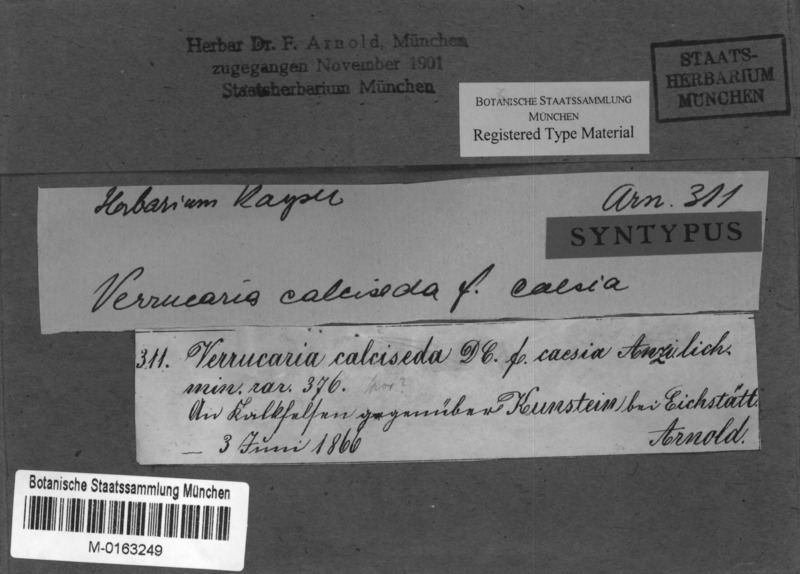 Herbar Dr. F. Arnold, München
zugegangen November 1901
Staatsherbarium München
STAATS-
HERBARIUM
MÜNCHEN
BOTANISCHE STAATSSAMMLUNG
MÜNCHEN
Registered Type Material
Herbarium Rayser Arn. 311
SYNTYPUS
Verrucaria calciseda f. caesia
311. Verrucaria calciseda DC. f. caesia Anzi lich.
min. rar. 376. hor?
An Kalkfelsen gegenüber Kunstein bei Eichstätt.
— 3 Juni 1866 Arnold.
Botanische Staatssammlung München
M-0163249